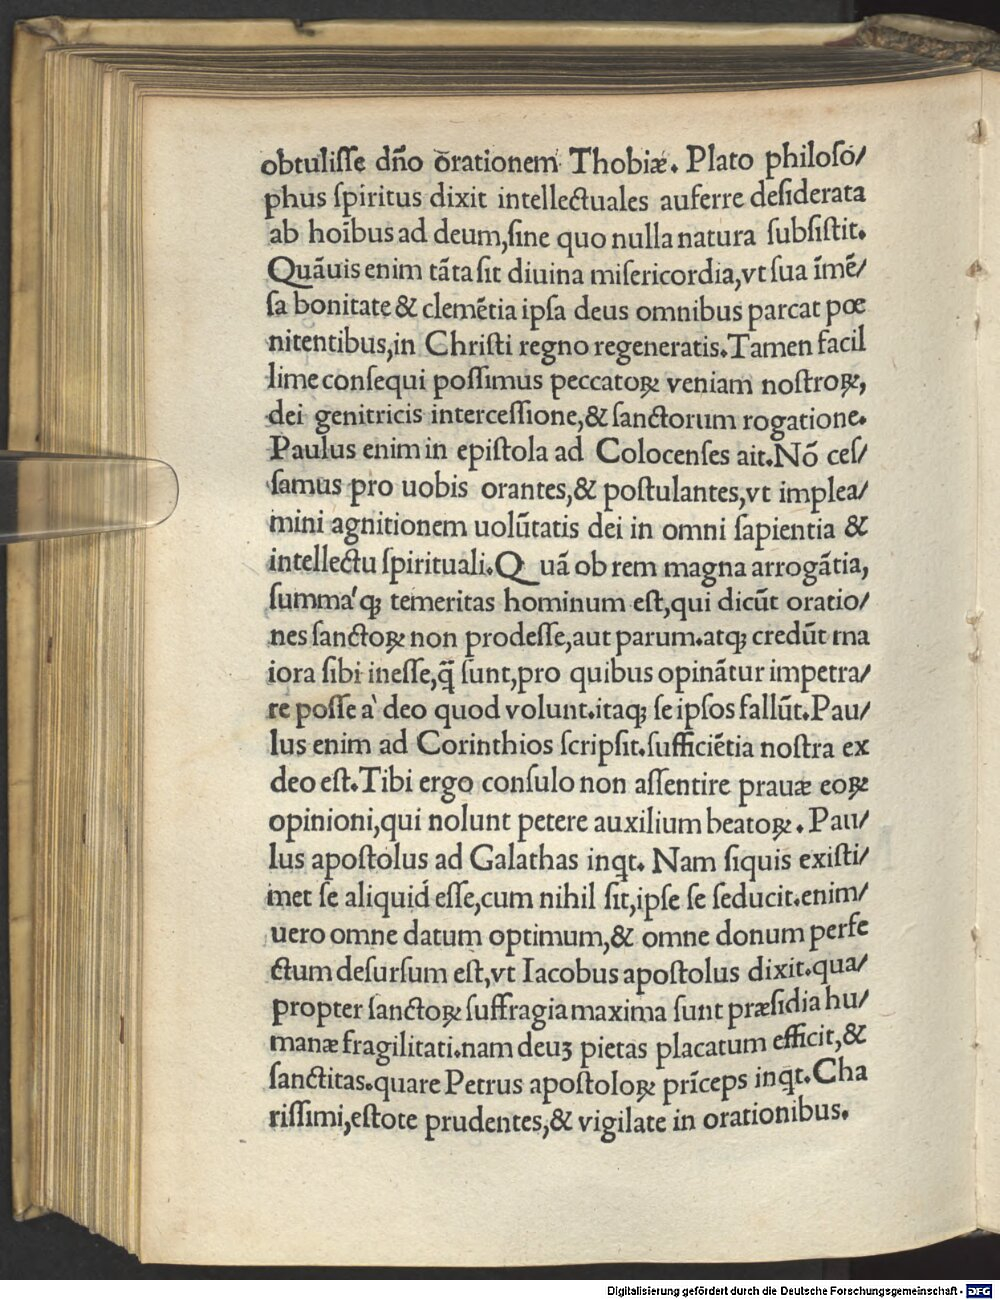 obtuliſſe dn̄o orationem Thobiæ. Plato philoſo/
phus ſpiritus dixit intellectuales auferre deſiderata
ab hoībus ad deum,ſine quo nulla natura ſubſiſtit.
Quāuis enim tāta ſit diuina miſericordia,vt ſua īmē/
ſa bonitate & clemētia ipſa deus omnibus parcat pœ
nitentibus,in Chriſti regno regeneratis.Tamen facil
lime conſequi poſſimus peccatoꝝ veniam noſtroꝝ,
dei genitricis interceſſione,& ſanctorum rogatione.
Paulus enim in epiſtola ad Colocenſes ait.Nō ceſ/
ſamus pro uobis orantes,& poſtulantes,vt implea/
mini agnitionem uolūtatis dei in omni ſapientia &
intellectu ſpirituali.Quā ob rem magna arrogātia,
ſumma'qꝫ temeritas hominum eſt,qui dicūt oratio/
nes ſanctoꝝ non prodeſſe,aut parum.atqꝫ credūt ma
iora ſibi ineſſe,q̄ ſunt,pro quibus opinātur impetra/
re poſſe à deo quod volunt.itaqꝫ ſe ipſos fallūt.Pau/
lus enim ad Corinthios ſcripſit.ſufficiētia noſtra ex
deo eſt.Tibi ergo conſulo non aſſentire prauæ eoꝝ
opinioni,qui nolunt petere auxilium beatoꝝ. Pau/
lus apoſtolus ad Galathas inqt. Nam ſiquis exiſti/
met ſe aliquid eſſe,cum nihil ſit,ipſe ſe ſeducit.enim/
uero omne datum optimum,& omne donum perfe
ctum deſurſum eſt,vt Iacobus apoſtolus dixit.qua/
propter ſanctoꝝ ſuffragia maxima ſunt præſidia hu/
manæ fragilitati.nam deuꝫ pietas placatum efficit,&
ſanctitas.quare Petrus apoſtoloꝝ prīceps inqt.Cha
riſſimi,eſtote prudentes,& vigilate in orationibus.
Digitalisierung gefördert durch die Deutsche Forschungsgemeinschaft - DFG